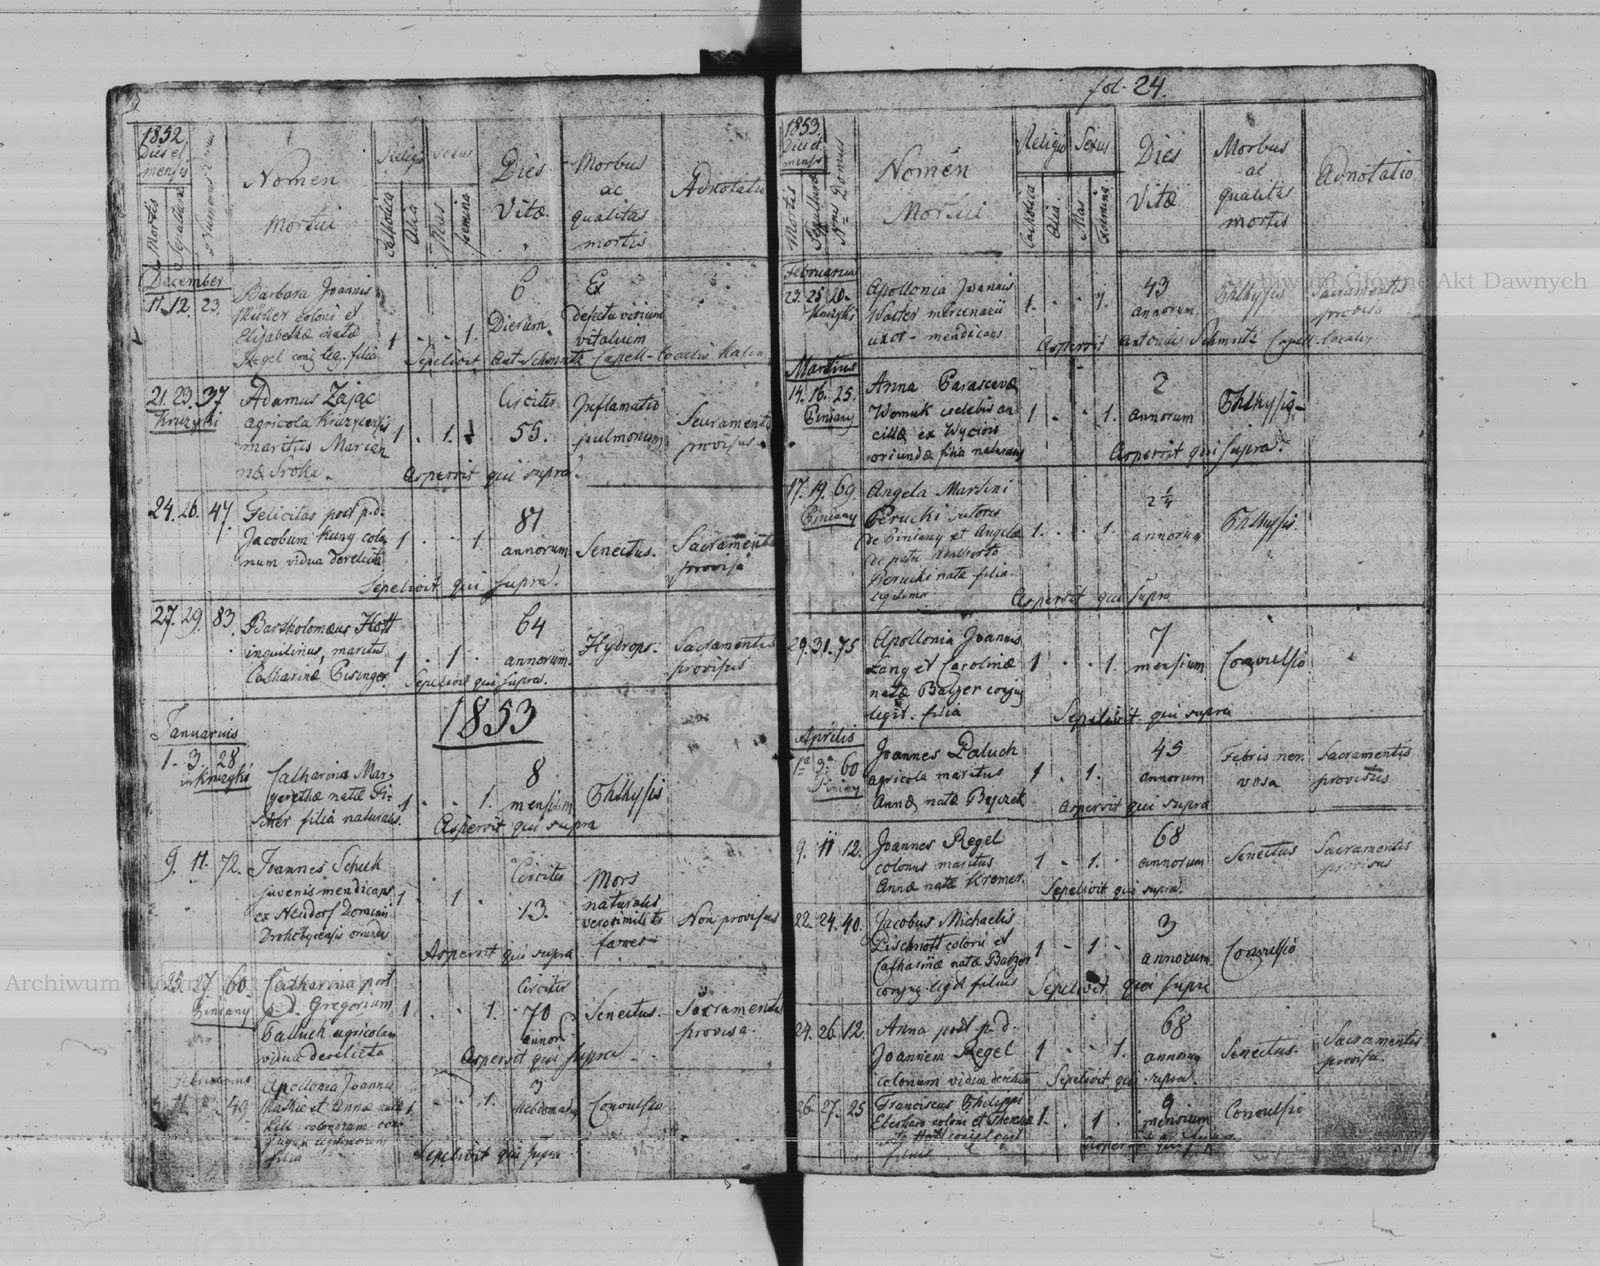 1852
Dies et
mensis
Mortis
Sepulturae
Numerus Domus
Nomen
Mortui
Religio
Catholica
Alia
Sexus
Mas
femina
Dies
Vitæ
Morbus
ac
qualitas
mortis
Adnotatio
December
11. 12. 23.
Barbara Joannis
Müller coloni et
Elisabethæ natæ
conj. leg. filia
1 . . 1.
6
Dierum.
Ex
defectu virium
vitalium
Sepelivit Ant. Schmutz Capell-localis
21. 23. 37
Kruzyki
Adamus Zając
agricola Kruzycensis
maritus Marian
næ Sroka.
1 . 1.
Circiter
55.
Inflamatio
pulmonum
Sacramentis
provisus
Aspersit qui supra.
24. 26. 47.
Felicitas post p.d.
Jacobum Kuny colo
num vidua derelicta
1 . . 1.
81
annorum
Senectus.
Sacramentis
provisa
Sepelivit qui supra.
27. 29. 83.
Bartholomæus Hott
inquilinus, maritus
Catharinæ Eisinger.
1 . 1 .
64
annorum.
Hydrops.
Sacramentis
provisus
Sepelivit qui supra.
1853
Januarius
1. 3. 28
in Kruzyki
Catharina Mar-
gerethæ natæ
filia naturalis.
1 . . 1.
8
mensium
Phthysis
Aspersit qui supra
9. 11. 72.
Joannes Schuk
juvenis mendicans
ex Neudorf Dominii
Drohobycensis
1 . 1 .
Circiter
13.
Mors
naturalis
verosimiliter
fames
Non provisus
Aspersit qui supra
25. 27. 60.
Piniany
Catharina post
p.d. Gregorium
Palluch agricolam
vidua derelicta
1 . . 1.
Circiter
70
annor
Senectus.
Sacramentis
provisa.
Aspersit qui supra.
Februarius
49.
Apollonia Joannis
et Annæ natæ
colonorum
legitimorum
filia
1 . . 1.
3
hebdomadum
Convulsio
Sepelivit qui supra
fol. 24.
1853.
Dies et
mensis
Mortis
Sepulturæ
Nrus Domus
Nomen
Mortui
Religio
Catholica
Alia
Sexus
Mas
Femina
Dies
Vitæ
Morbus
ac
qualitas
mortis
Adnotatio
Februarius
23. 25.
Kruzyki
Apollonia Joannis
Walter mercenarii
uxor - mendicans
1. . . 1.
43
annorum
Phthysis
Sacramentis
provisa
Aspersit Antonius Schmutz Capell. localis
Martius
14. 16. 25.
Piniany
Anna Parascevæ
Womuk cælebis an
cillæ ex
oriundæ filia naturalis
1 . . 1.
2
annorum
Phthysis
Aspersit qui supra.
17. 19. 69.
Piniany
Angela Martini
Perucki sutoris
de Piniany et Angelæ
de patre Adalberto
Perucki nata filia
legitima
1. . . 1.
2 1/4
annorum
Phthysis.
Aspersit qui supra
29. 31. 75
Apollonia Joannis
Lang et Carolinæ
natæ Balzer conjug
legit. filia
1 . . 1.
7
mensium
Convulsio
Sepelivit qui supra
Aprilis
60
Joannes Paluch
agricola maritus
Annæ natæ
1 . 1.
45
annorum
Febris ner-
vosa
Sacramentis
provisus
Aspersit qui supra
9. 11 12.
Joannes Regel
colonus maritus
Annæ natæ Kremer.
1 . 1.
68
annorum
Senectus
Sacramentis
provisus
Sepelivit qui supra.
22. 24. 40.
Jacobus Michaelis
coloni et
Catharinæ natæ Balzer
conjug. legit filius
1 - 1 -
3
annorum.
Convulsio
Sepelivit qui supra
24. 26. 12.
Anna post p.d.
Joannem Regel
colonum vidua derelicta
1 . . 1.
68
annorum
Senectus.
Sacramentis
provisa.
Sepelivit qui supra.
26. 27. 25
Franciscus Philippi
coloni et Theresiæ
filius
1 . . 1 .
9
mensium
Convulsio
Aspersit qui supra
Archiwum Główne Akt Dawnych
Archiwum